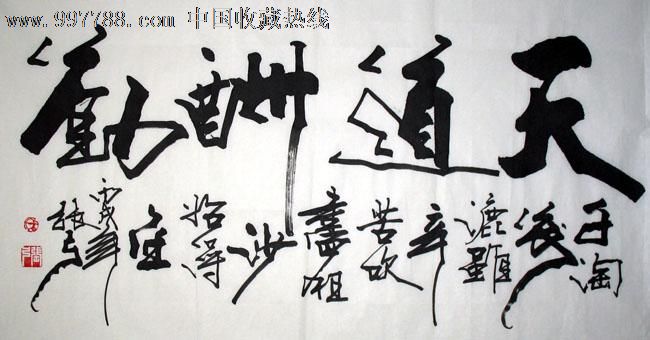 www.997788.com 中国收藏热线
天道酬勤
千淘
萬
漉雖
辛
苦吹
盡狂
沙
始得
金
丙戌年